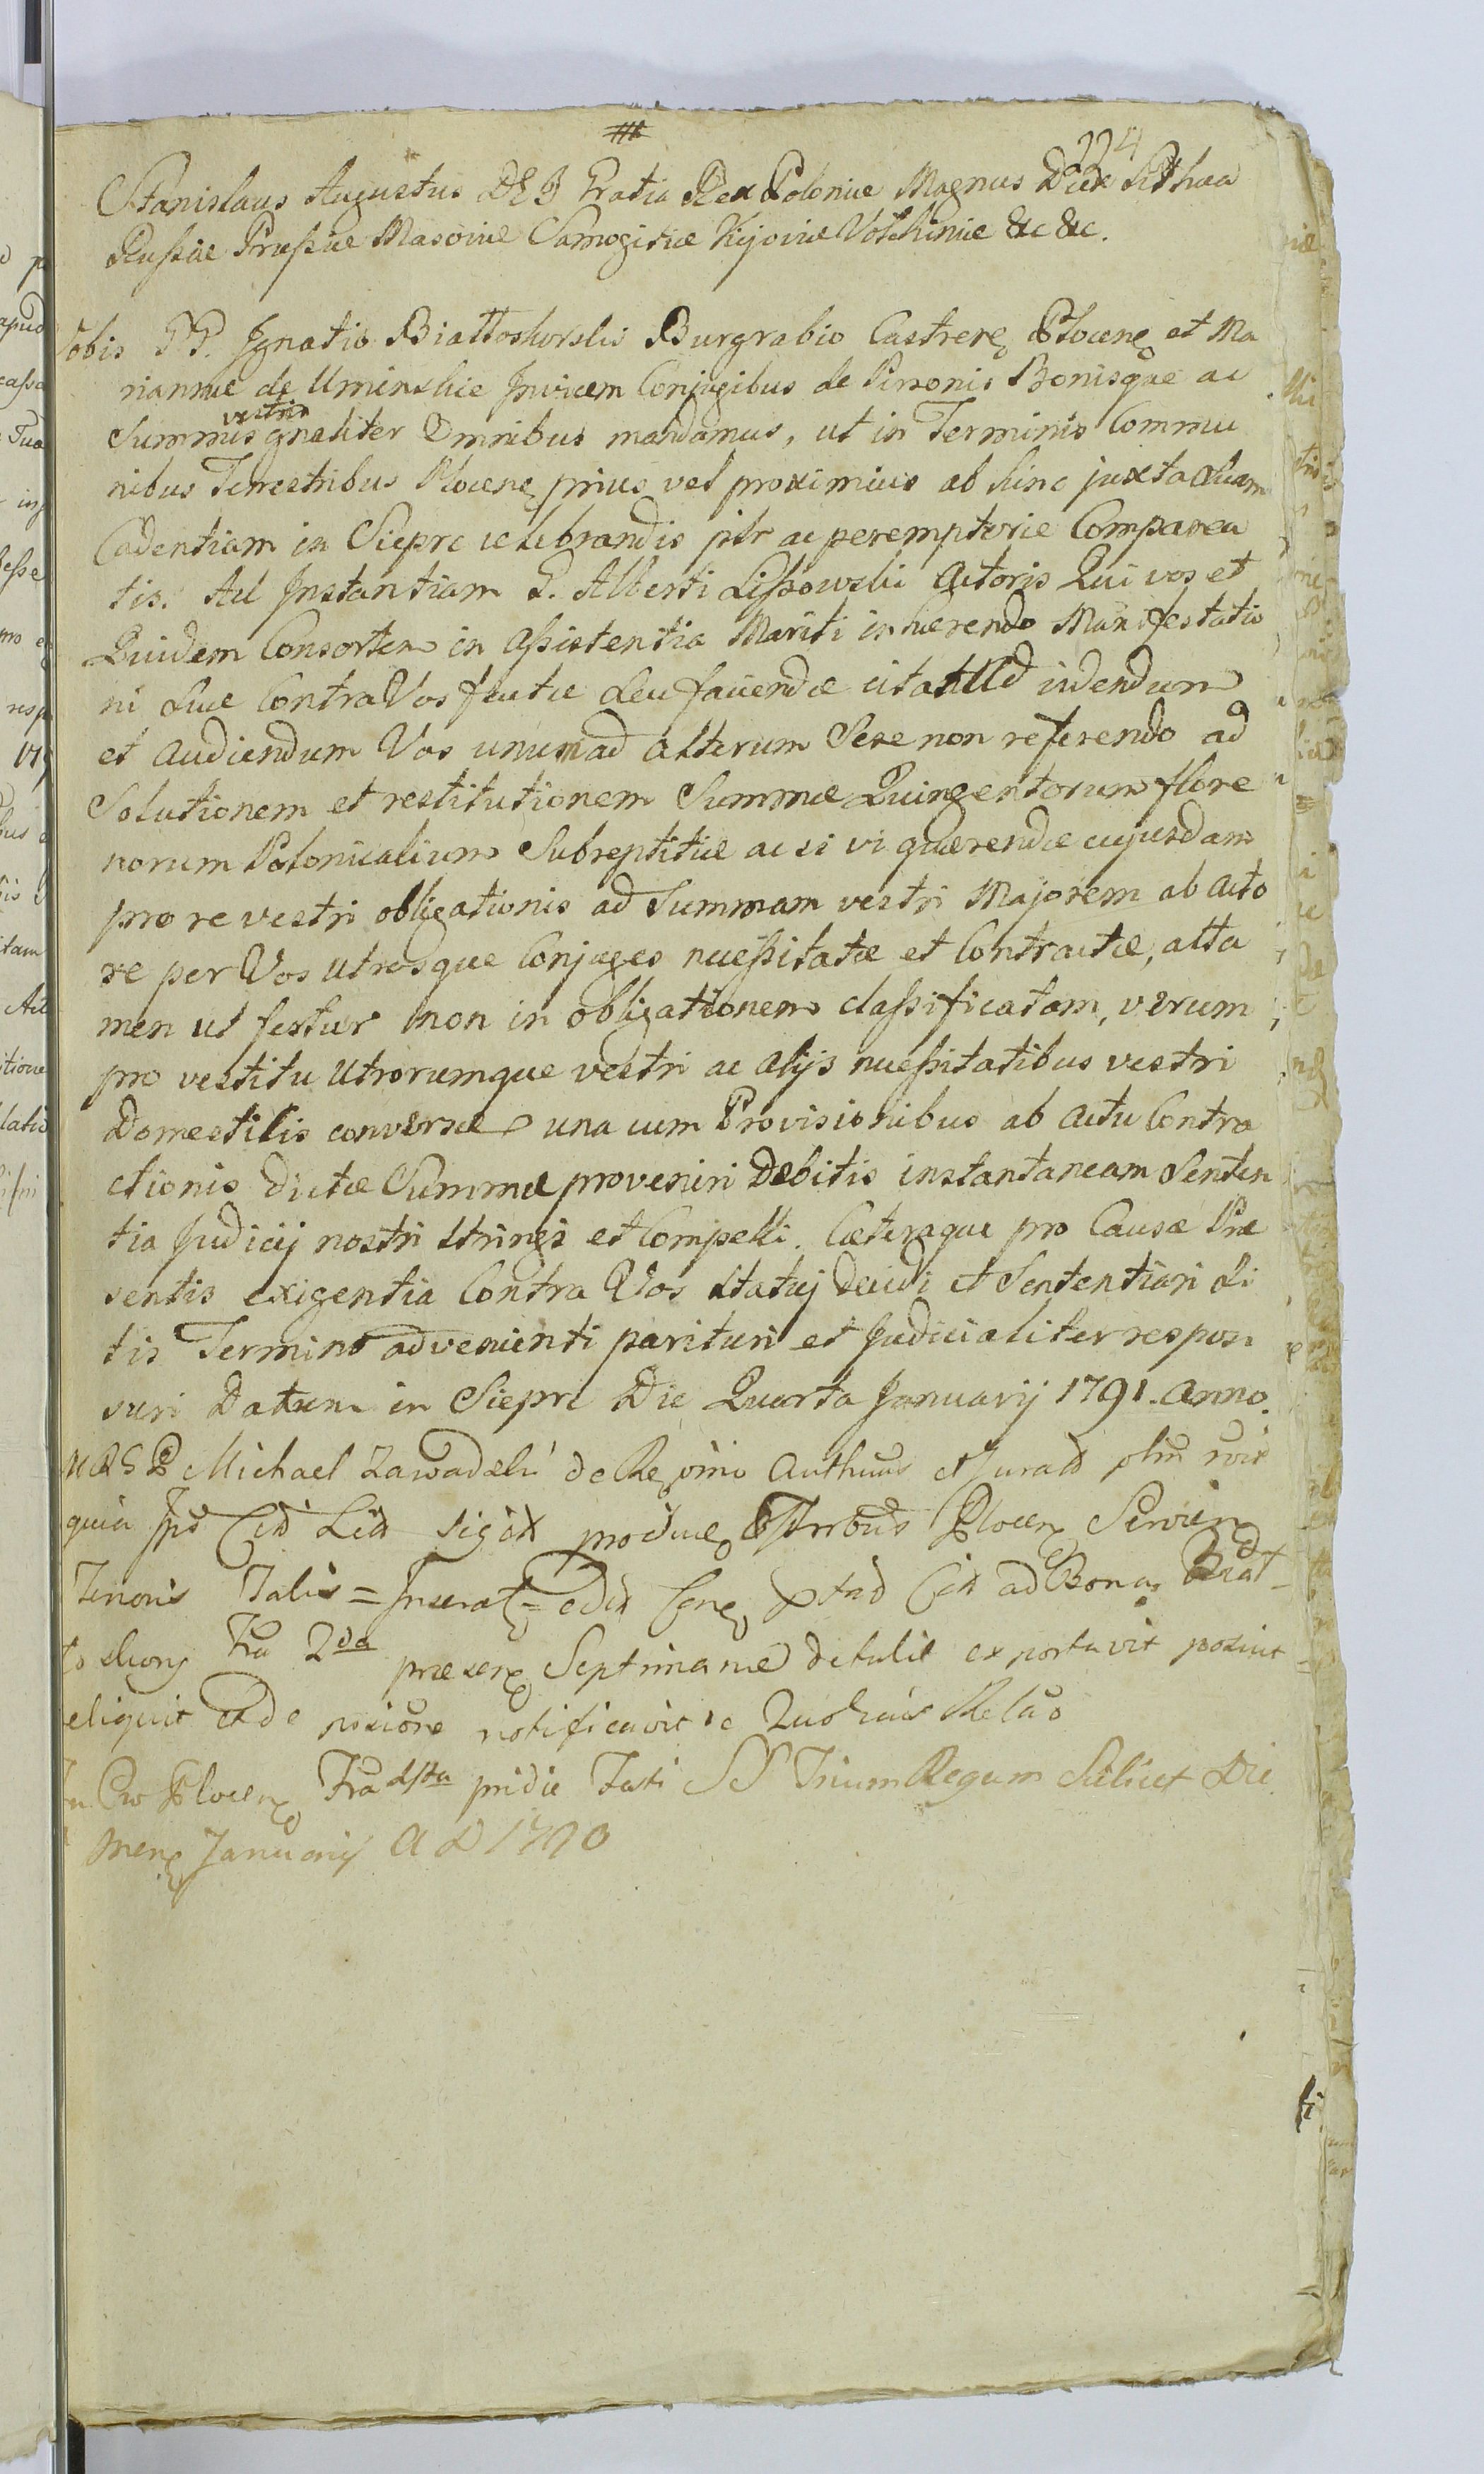 224
Stanislaus Augustus DEI Gratia Rex Poloniæ Magnus Dux Lithua
Rußiæ Prußiæ Masoviæ Samogitiæ Kijoviæ Volhiniæ &c &c.
Vobis PP. Ignatio Białłoskorski Burgrabio Castrens Plocens et Ma
riannæ de Uminskie Invicem Conjugibus de Personis Bonisque ac
Summis vestris gnaliter Omnibus mandamus, ut in Terminis Commu
nibus Terrestribus Plocens prius vel proximius ab hinc juxta suam
Cadentiam in Sieprc celebrandis pltr ac peremptorie Comparea
tis. Ad Instantiam P. Alberti Lißowski Actoris Qui vos et
Quidem Consortem in Aßistentia Mariti inhærendo Manifestatio
ni suæ Contra Vos factæ seu faciendæ citat Ad videndum
et Audiendum Vos unum ad alterum Sese non referendo ad
Solutionem et restitutionem Summæ Quingentorum flore
norum Polonicalium Subreptitiæ ac si vi quærendæ cujusdam
pro re vestri obligationis ad Summam vestri Majorem ab Acto
re per Vos utrosque Conjuges neceßitatæ et Contractæ, atta
men ut fertur non in obligationem claßificatam, verum
pro vestitu Utrorumque vestri ac alijs neceßitatibus vestri
Domesticis conversæ una cum Provisionibus ab actu Contra
ctionis dictæ Summæ proveniri Debitis instantaneam Senten
tia Judicij nostri stringi et Compelli. Cæteraque pro Causæ Præ
sentis exigentia Contra Vos statuj Decidi et Sententiari Li
tis Termino advenienti parituri et Judicialiter respon
suri Datum in Sieprc Die Quarta Januarij 1791. Anno.
Michael Zawadzki de
quia
Tenoris Talis = Inserat = ad Bona Biał
to skory Fra 2da præsens Septimanæ detulit exportavit posuit
eliquit notificavit
Plocens Fra pridie Festi SS Trium Regum Scilicet Die
Mens Januarij A D 1790